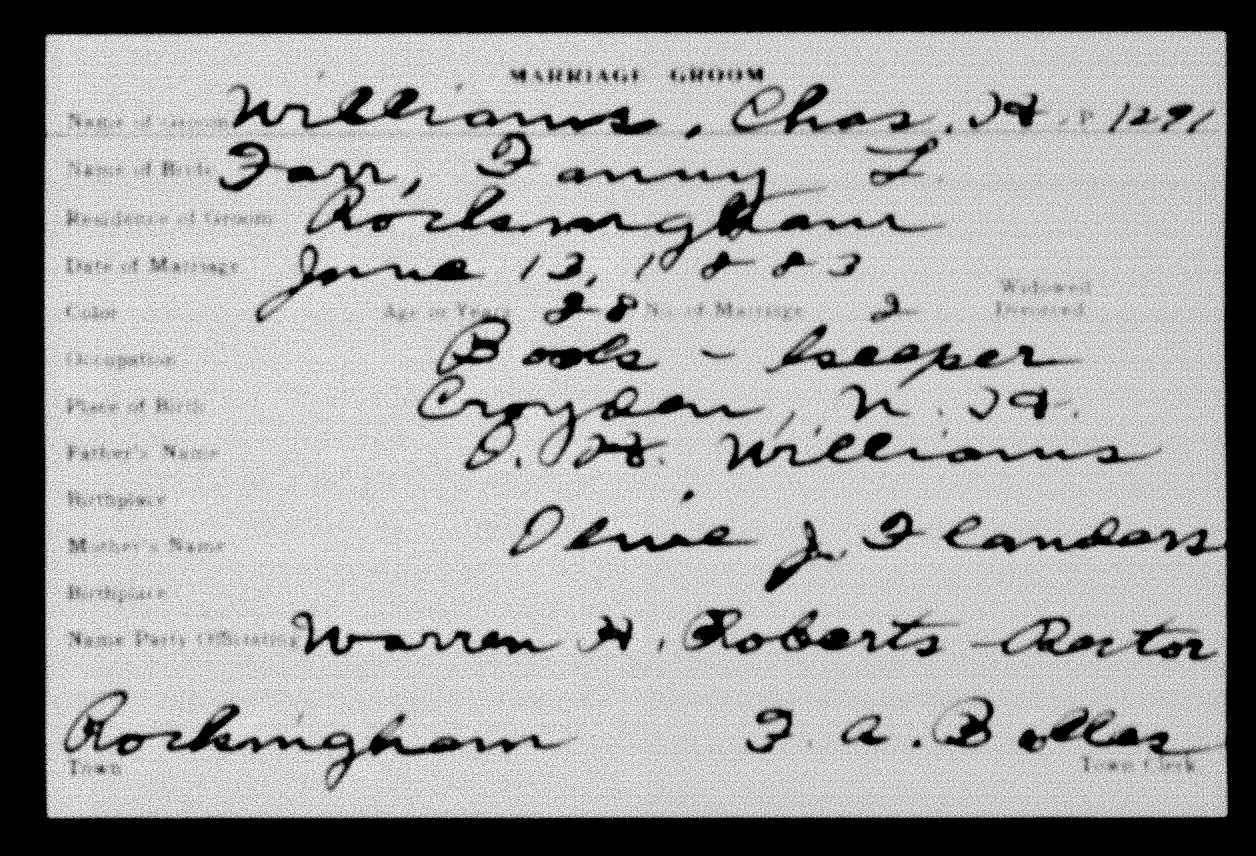 MARRIAGE GROOM
Name of Groom Williams, Chas. H. P 1291
Name of Bride Farr, Fanny L.
Residence of Groom Rockingham
Date of Marriage June 13, 1883
Color Age in Years 28 No. of Marriage 2 Widowed Divorced
Occupation Book-keeper
Place of Birth Croydon, N. H.
Father's Name O. H. Williams
Birthplace
Mother's Name Olivie J. Flanders
Birthplace
Name Party Officiating Warren H. Roberts - Rector
Rockingham F. A. Bolles
Town Town Clerk